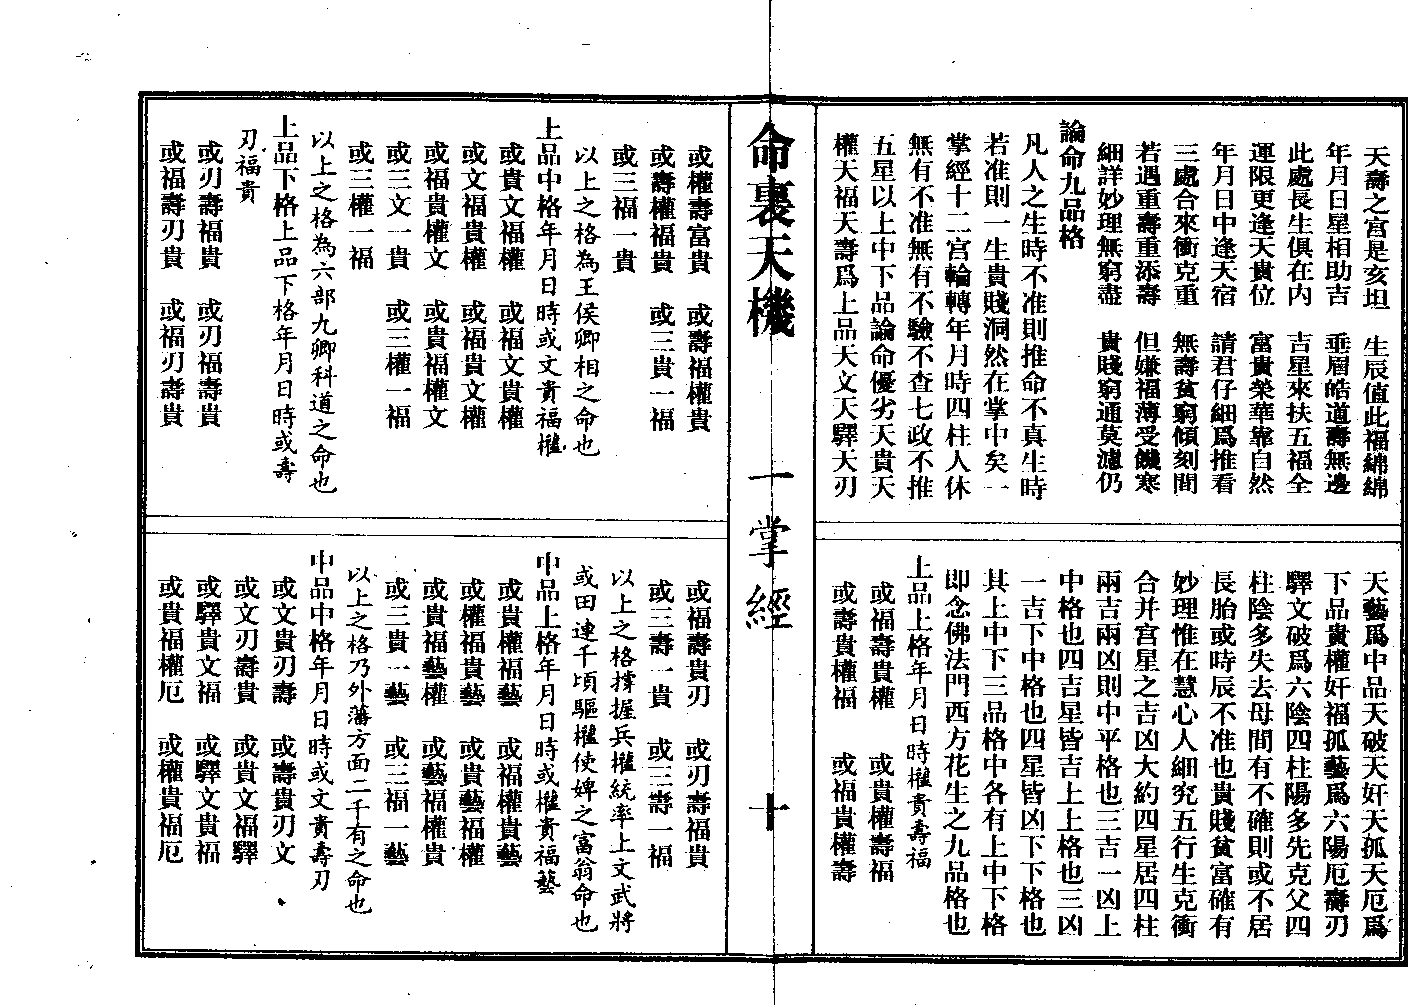 天壽之宮是亥坦　生辰值此福綿綿
年月日星相助吉　垂眉皓道壽無邊
此處長生俱在內　吉星來扶五福全
運限更逢天貴位　富貴榮華靠自然
年月日中逢天宿　請君仔細爲推看
三處合來衝克重　無壽貧窮傾刻間
若遇重壽重添壽　但嫌福薄受饑寒
細詳妙理無窮盡　貴賤窮通莫濾仍
論命九品格
凡人之生時不准則推命不真生時
若准則一生貴賤洞然在掌中矣一
掌經十二宮輪轉年月時四柱人休
無有不准無有不驗不查七政不推
五星以上中下品論命優劣天貴天
權天福天壽爲上品天文天驛天刃
天藝爲中品天破天奸天孤天厄爲
下品貴權奸福孤藝爲六陽厄壽刃
驛文破爲六陰四柱陽多先克父四
柱陰多失去母間有不確則或不居
長胎或時辰不准也貴賤貧富確有
妙理惟在慧心人細究五行生克衝
合并宮星之吉凶大約四星居四柱
兩吉兩凶則中平格也三吉一凶上
中格也四吉星皆吉上上格也三凶
一吉下中格也四星皆凶下下格也
其上中下三品格中各有上中下格
即念佛法門西方花生之九品格也
上品上格年月日時權貴壽福
或福壽貴權　或貴權壽福
或壽貴權福　或福貴權壽
命裏天機　一掌經　十
或權壽富貴　或壽福權貴
或壽權福貴　或三貴一福
或三福一貴
以上之格為王侯卿相之命也
上品中格年月日時或文貴福權
或貴文福權　或福文貴權
或文福貴權　或福貴文權
或福貴權文　或貴福權文
或三文一貴　或三權一福
或三權一福
以上之格為六部九卿科道之命也
上品下格上品下格年月日時或壽
刃福貴
或刃壽福貴　或刃福壽貴
或福壽刃貴　或福刃壽貴
或福壽貴刃　或刃壽福貴
或三壽一貴　或三壽一福
以上之格撐握兵權統率上文武將
或田連千頃驅權使婢之富翁命也
中品上格年月日時或權貴福藝
或貴權福藝　或福權貴藝
或權福貴藝　或貴藝福權
或貴福藝權　或藝福權貴
或三貴一藝　或三福一藝
以上之格乃外藩方面二千有之命也
中品中格年月日時或文貴壽刃
或文貴刃壽　或壽貴刃文
或文刃壽貴　或貴文福驛
或驛貴文福　或驛文貴福
或貴福權厄　或權貴福厄